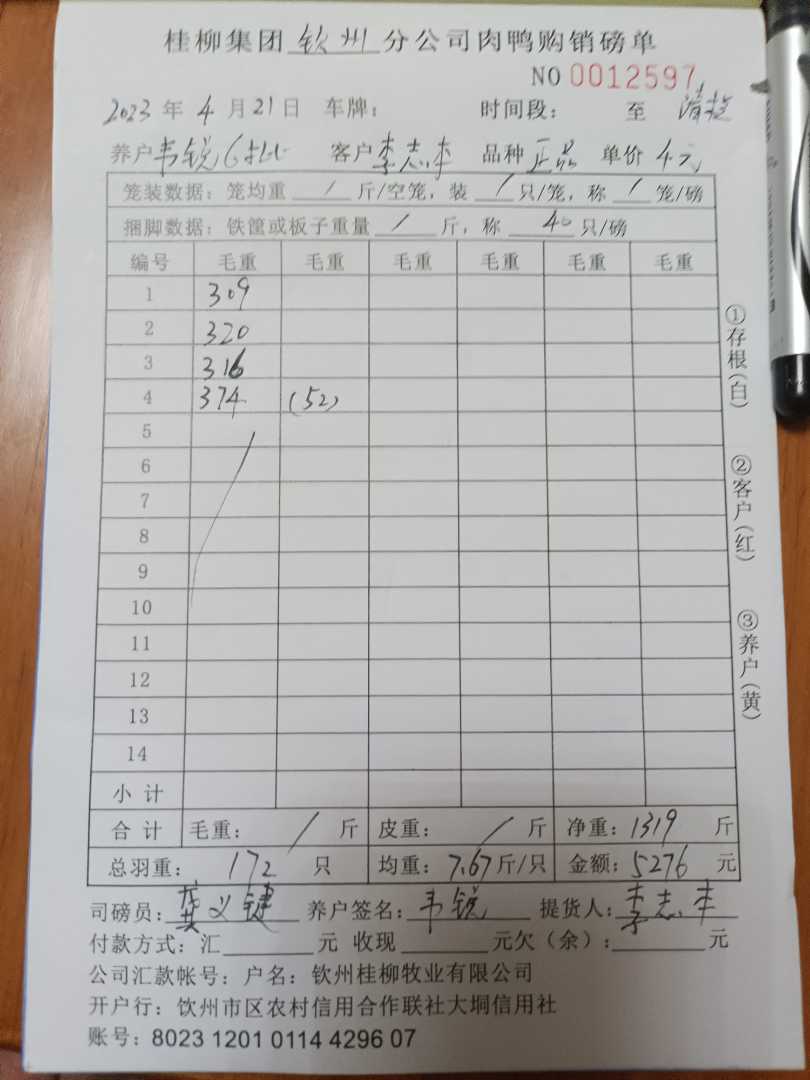 桂柳集团 钦州 分公司肉鸭购销磅单
NO 0012597
2023 年 4 月 21 日 车牌： 时间段： 至
养户 韦锐 6批 客户 李志丰 品种 正品 单价 4元
笼装数据：笼均重 / 斤/空笼，装 / 只/笼，称 / 笼/磅
捆脚数据：铁筐或板子重量 / 斤，称 40 只/磅
编号 毛重 毛重 毛重 毛重 毛重 毛重
1 309
2 320
3 316
4 374 (52)
5
6
7
8
9
10
11
12
13
14
小计
合计 毛重： / 斤 皮重： / 斤 净重：1319 斤
总羽重： 172 只 均重：7.67斤/只 金额：5276 元
司磅员： 义键 养户签名：韦锐 提货人：李志丰
付款方式：汇 元 收现 元欠（余）： 元
公司汇款帐号：户名：钦州桂柳牧业有限公司
开户行：钦州市区农村信用合作联社大垌信用社
账号：8023 1201 0114 4296 07
①存根（白）
②客户（红）
③养户（黄）